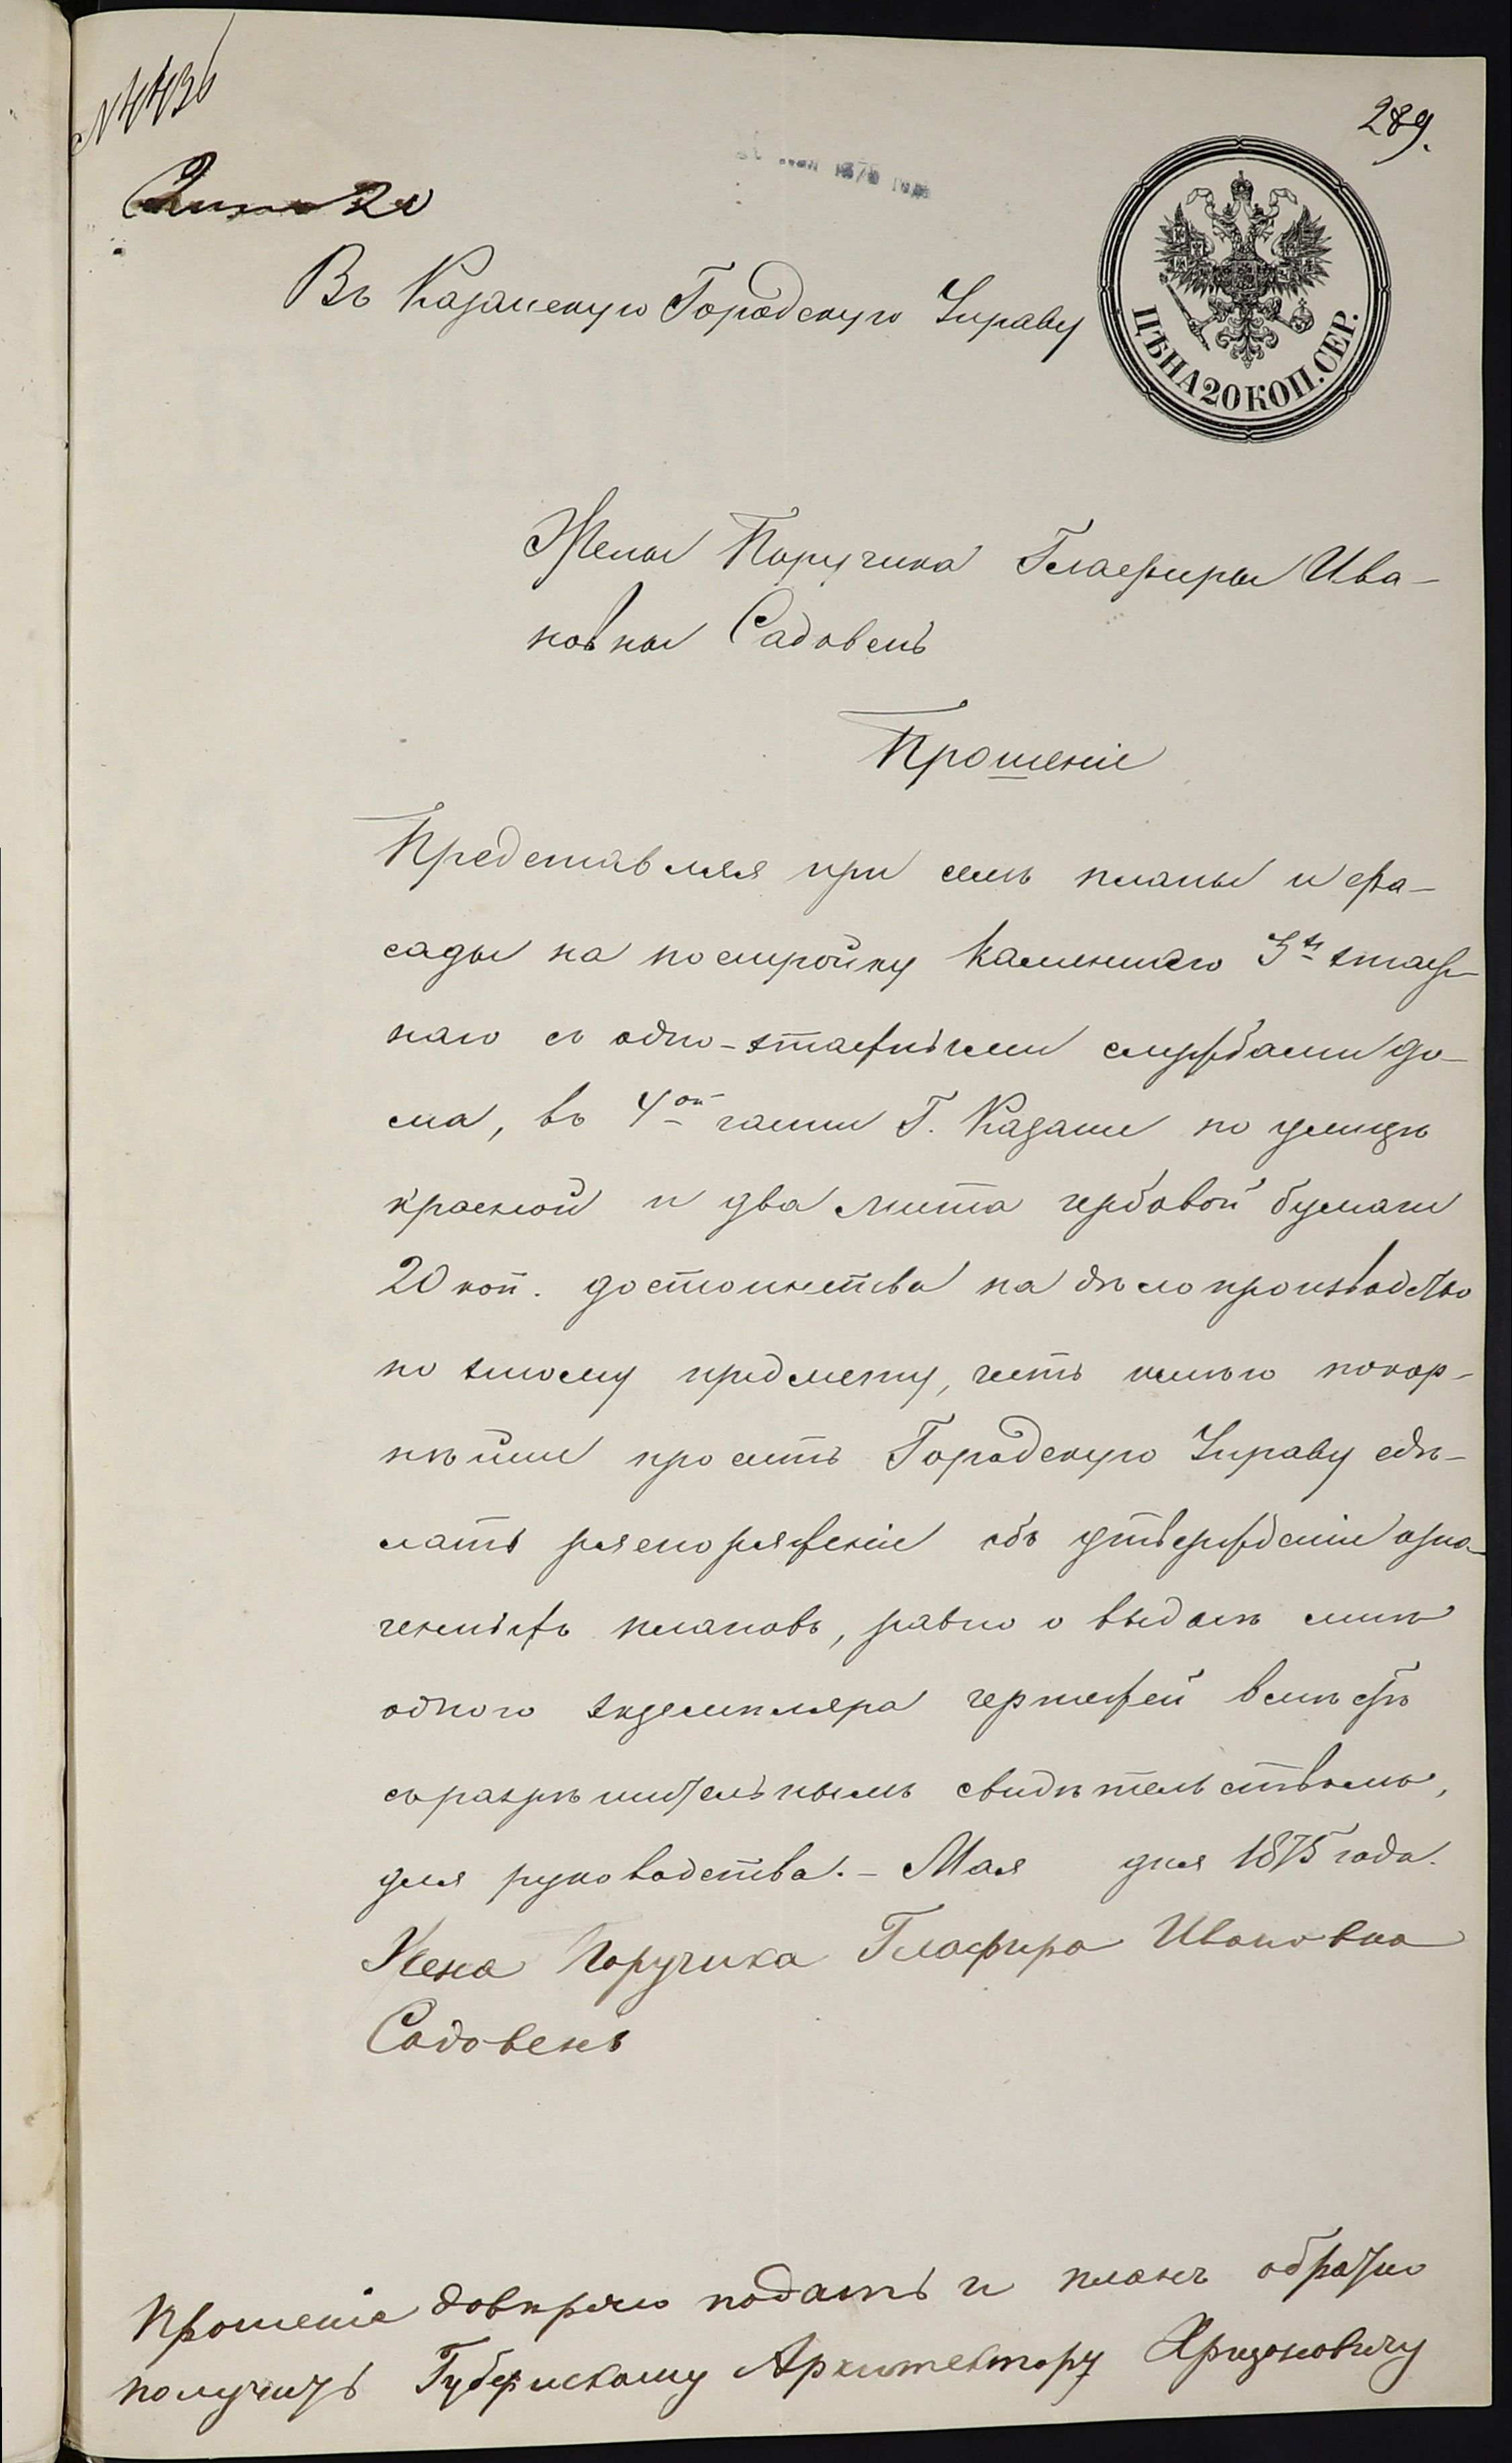 № 4436
289.
20
Въ Казанскую Городскую Управу
ЦѢНА 20 КОП. СЕР.
Жены Поручика Глафиры Ива-
новны Садовень
Прошеніе
Представляя при семъ планы и фа-
сады на постройку каменнаго 3хъ этаж-
наго съ одно-этажными службами до-
ма, въ 4ой части Г. Казани по улицѣ
красной и два листа гербовой бумаги
20 коп. достоинства на дѣлопроизводство
по этому предмету, честь имѣю покор-
нѣйше просить Городскую Управу сдѣ-
лать распоряженіе объ утвержденіи озна-
ченныхъ плановъ, равно о выдачѣ мнѣ
одного экземпляра чертежей вмѣстѣ
съ разрѣшительнымъ свидѣтельствомъ,
для руководства. – Мая дня 1875 года.
Жена Поручика Глафира Ивановна
Садовень
Прошеніе довѣряю подать и планъ обратно
получить Губернскому Архитектору Хрщоновичу